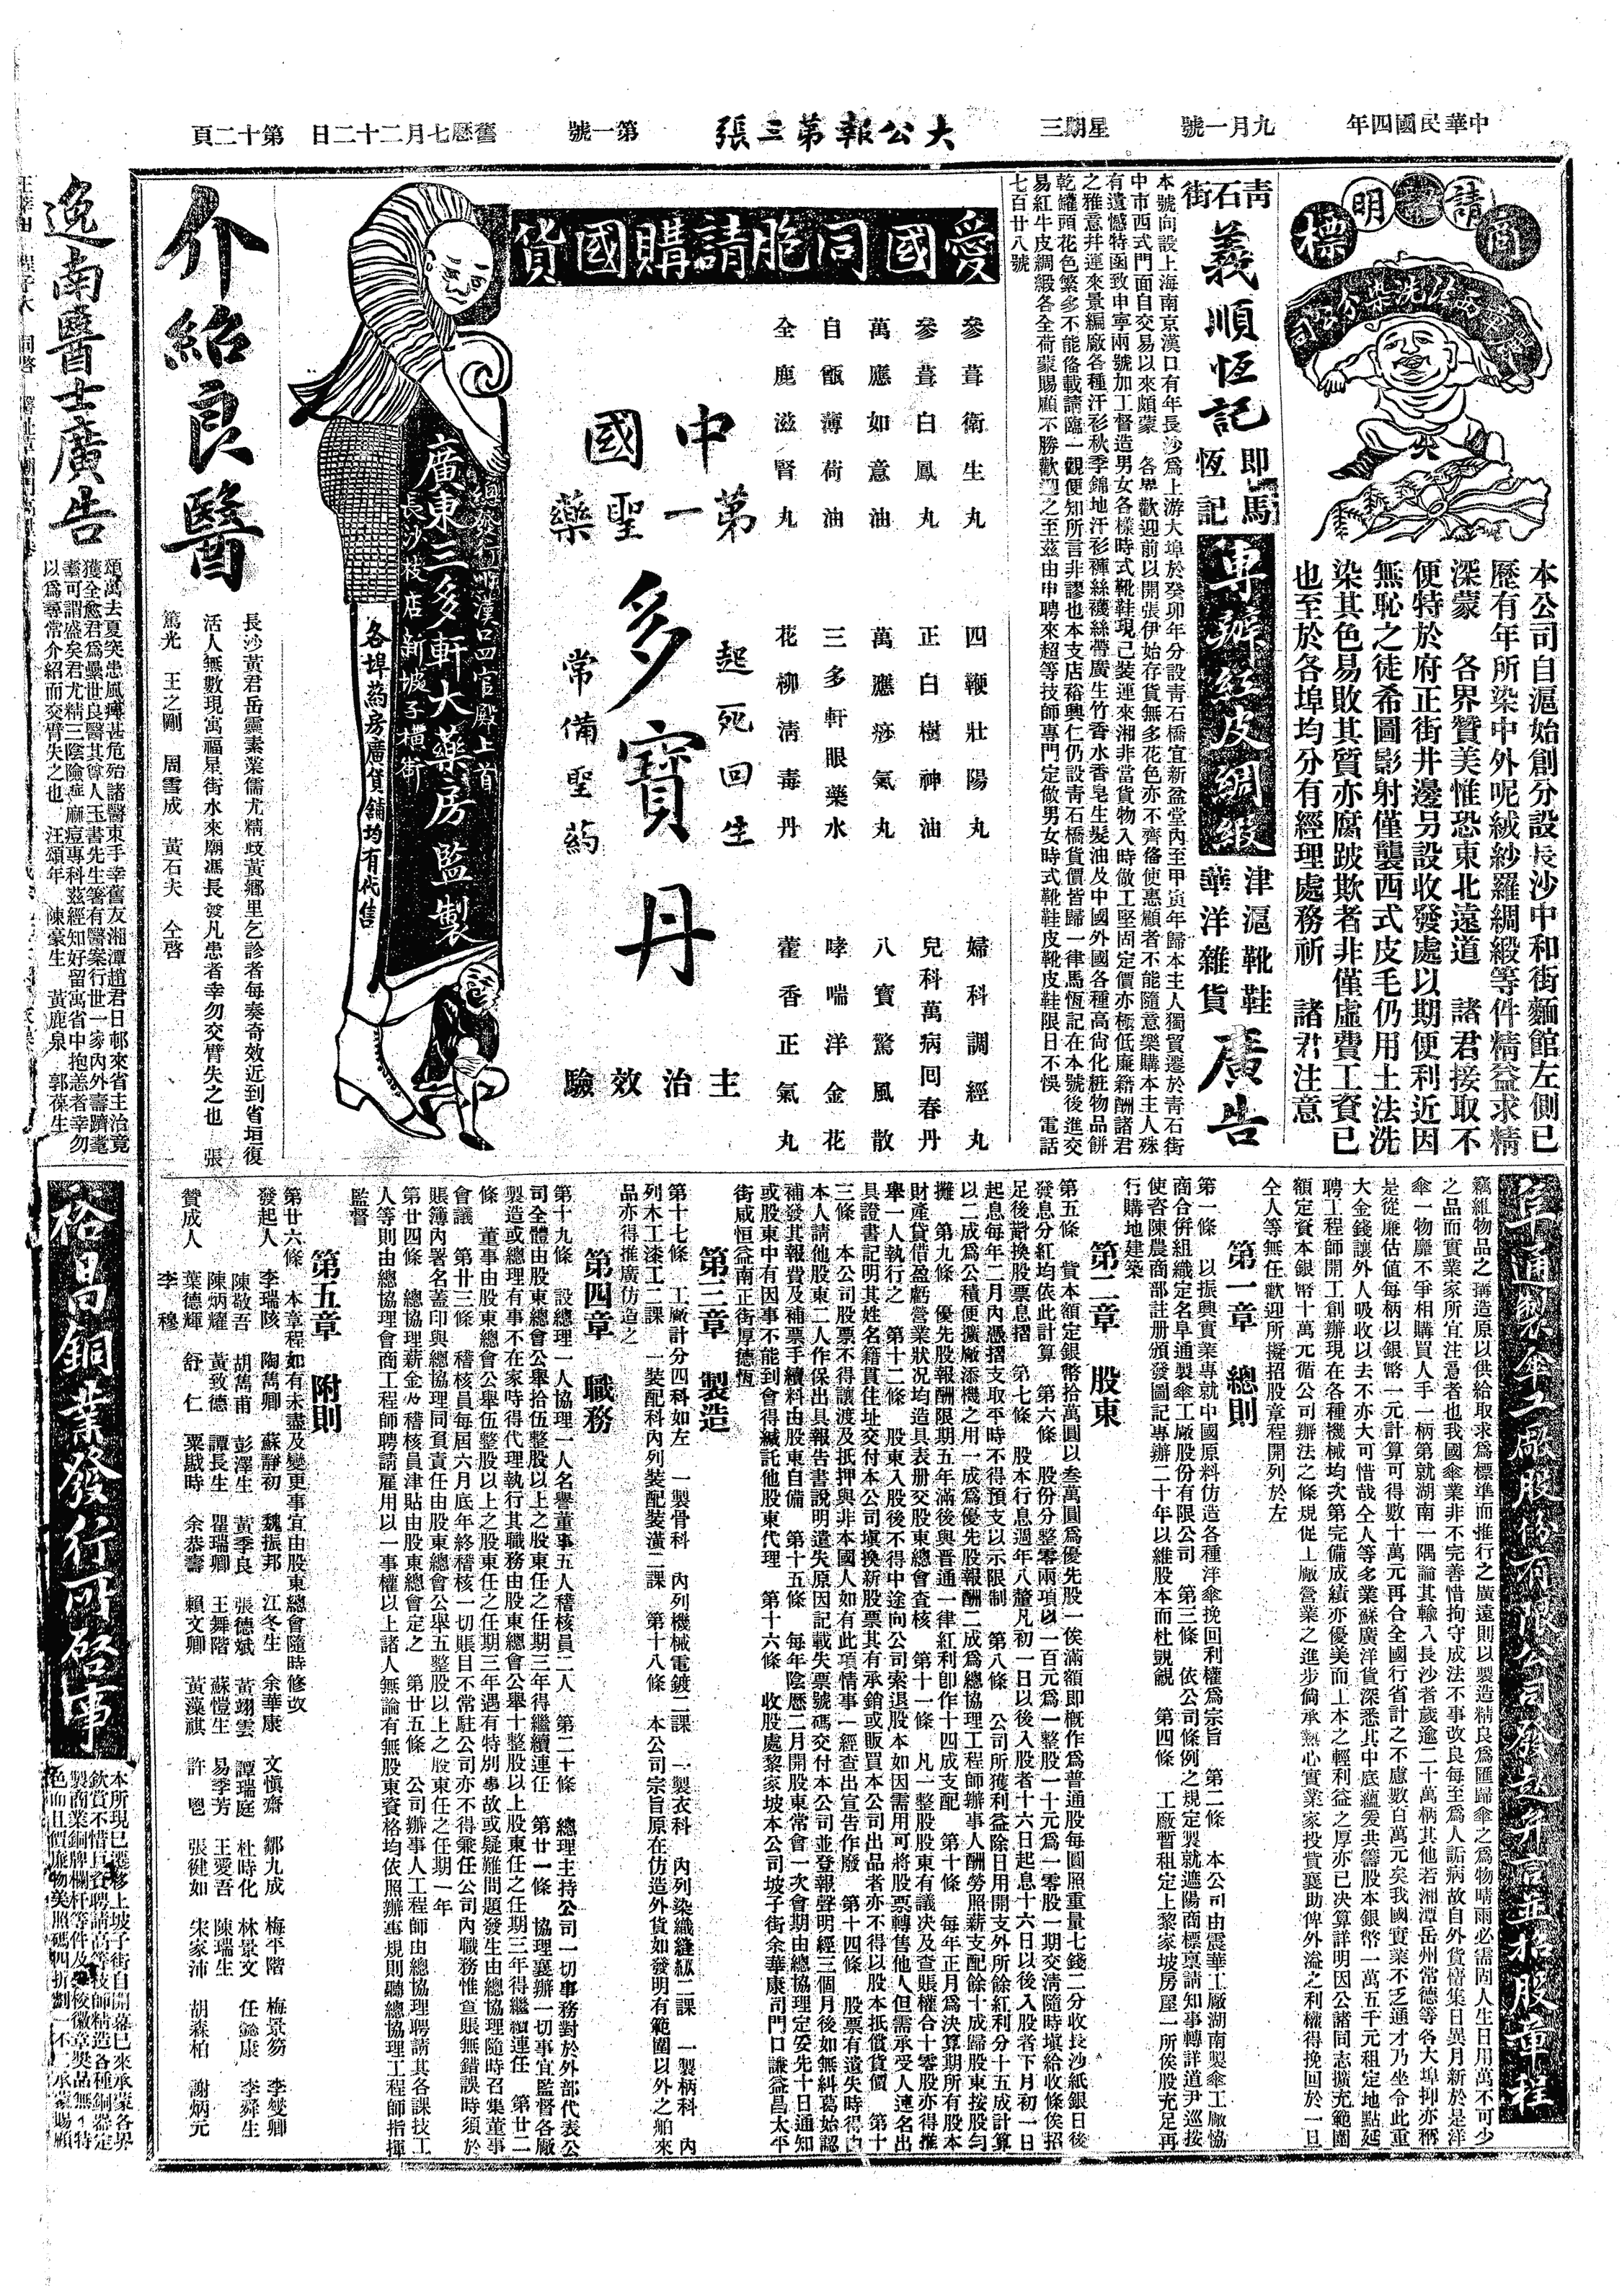 中華民國四年
九月一號
星期三
大公報第三張
第一號
舊歷七月二十二日
第十二頁
商標
請明
本公司自滬始創分設長沙中和街麵館左側已
歷有年所染中外呢絨紗羅綢緞等件精益求精
深蒙　各界贊美惟恐東北遠道　諸君接取不
便特於府正街井邊另設收發處以期便利近因
無恥之徒希圖影射僅襲西式皮毛仍用土法洗
染其色易敗其質亦腐跛欺者非僅虛費工資已
也至於各埠均分有經理處務祈　諸君注意
青石街
義順恆記
即馬恆記
專辦經皮綢緞
津滬靴鞋
華洋雜貨
廣告
本號向設上海南京漢口有年長沙爲上游大埠於癸卯年分設靑石橋宜新盆堂內至甲寅年歸本主人獨貿遷於靑石街
中市西式門面自交易以來頗蒙　各界歡迎前以開張伊始存貨無多花色亦不齊俻使惠顧者不能隨意樂購本主人殊
有遺憾特函致申寧兩號加工督造男女各樣時式靴鞋現已裝運來湘非當貨物入時做工堅固定價亦極低廉籍酬諸君
之雅意幷運來景綸廠各種汗衫秋季錦地汗衫褲絲襪絲帶廣生竹香水香皂生髮油及中國外國各種高尙化粧物品餅
乾罐頭花色繁多不能俻載請臨一觀便知所言非謬也本支店裕興仁仍設靑石橋貨價皆歸一律馬恆記在本號後進交
易紅牛皮綢緞各全荷蒙賜顧不勝歡迎之至茲由申聘來超等技師專門定做男女時式靴鞋皮靴皮鞋限日不悞　電話
七百廿八號
愛國同胞請購國貨
參茸衛生丸　四鞭壯陽丸　婦科調經丸
參茸白鳳丸　正白樹神油　兒科萬病囘春丹
萬應如意油　萬應痧氣丸　八寶驚風散
自甑薄荷油　三多軒眼藥水　哮喘洋金花
全鹿滋腎丸　花柳淸毒丹　藿香正氣丸
中國
第一聖藥
多寶丹
起死回生
常備聖葯
主治效驗
廣東三多軒大藥房監製
長沙枝店新坡子橫街
各埠葯房廣貨舖均有代售
介紹良醫
長沙黃君岳靈素業儒尤精歧黃鄉里乞診者每奏奇效近到省垣復
活人無數現寓福星街水來廟馮長發凡患者幸勿交臂失之也　張
篤光　王之剛　周雪成　黃石夫　仝啓
逸南醫士廣告
頌萬去夏突患風痺甚危殆諸醫束手幸舊友湘潭趙君日邨來省主治竟
獲全愈君爲纍世良醫其尊人玉書先生箸有醫案行世一家內外壽躋耄
耋可謂盛矣君尤精三陰險症麻痘專科茲經知好留寓省中抱恙者幸勿
以爲尋常介紹而交臂失之也　汪頌年　陳豪生　黃鹿泉　郭葆生
阜通製傘工廠股份有限公司發起弁言並招股章程
竊維物品之搆造原以供給取求爲標準而推行之廣遠則以製造精良爲匯歸傘之爲物晴雨必需固人生日用萬不可少
之品而實業家所宜注意者也我國傘業非不完善惜拘守成法不事改良每至爲人詬病故自外貨慴集日異月新於是洋
傘一物靡不爭相購買人手一柄第就湖南一隅論其輸入長沙者歲逾二十萬柄其他若湘潭岳州常德等各大埠抑亦稱
是從廉估值每柄以銀幣一元計算可得數十萬元再合全國行省計之不慮數百萬元矣我國實業不乏通才乃坐令此重
大金錢讓外人吸收以去不亦大可惜哉仝人等多業蘇廣洋貨深悉其中底蘊爰共籌股本銀幣一萬五千元租定地點延
聘工程師開工創辦現在各種機械均次第完備成績亦優美而上本之輕利益之厚亦已決算詳明因公諸同志擴充範圍
額定資本銀幣十萬元循公司辦法之條規促工廠營業之進步倘承熱心實業家投貲襄助俾外溢之利權得挽回於一旦
仝人等無任歡迎所擬招股章程開列於左
第一章　總則
第一條　以振興實業專就中國原料仿造各種洋傘挽回利權爲宗旨　第二條　本公司由震華工廠湖南製傘工廠協
商合併組織定名阜通製傘工廠股份有限公司　第三條　依公司條例之規定製就遮陽商標禀請知事轉詳道尹巡按
使咨陳農商部註册頒發圖記專辦二十年以維股本而杜覬覦　第四條　工廠暫租定上黎家坡房屋一所俟股充足再
行購地建築
第二章　股東
第五條　貲本額定銀幣拾萬圓以叁萬圓爲優先股一俟滿額即槪作爲普通股每圓照重量七錢二分收長沙紙銀日後
發息分紅均依此計算　第六條　股份分整零兩項以一百元爲一整股一十元爲一零股一期交淸隨時塡給收條俟招
足後對換股票息摺　第七條　股本行息週年八釐凡初一日以後入股者十六日起息十六日以後入股者下月初一日
起息每年二月內憑摺支取平時不得預支以示限制　第八條　公司所獲利益除日用開支外所餘紅利分十五成計算
以二成爲公積便擴廠添機之用一成爲優先股報酬二成爲總協理工程師辦事人酬勞照薪支配餘十成歸股東按股勻
攤　第九條　優先股報酬限期五年滿後與普通一律紅利卽作十四成支配　第十條　每年正月爲決算期所有股本
財產貸借盈虧營業狀况均造具表册交股東總會查核　第十一條　凡一整股股東有議決及查賬權合十零股亦得推
舉一人執行之　第十二條　股東入股後不得中途向公司索退股本如因需用可將股票轉售他人但需承受人連名出
具證書記明其姓名籍貫住址交付本公司塡換新股票其有承銷或販買本公司出品者亦不得以股本抵償貨價　第十
三條　本公司股票不得讓渡及抵押與非本國人如有此項情事一經查出宣告作廢　第十四條　股票有遺失時得由
本人請他股東二人作保出具報告書説明遺失原因記載失票號碼交付本公司並登報聲明經三個月後如無糾葛始認
補發其報費及補票手續料由股東自備　第十五條　每年陰歷二月開股東常會一次會期由總協理定妥先十日通知
或股東中有因事不能到會得緘託他股東代理　第十六條　收股處黎家坡本公司坡子街余華康司門口謙益昌太平
街咸恒益南正街厚德恆
第三章　製造
第十七條　工廠計分四科如左　一製骨科　內列機械電鍍二課　一製衣科　內列染織縫紉二課　一製柄科　內
列木工漆工二課　一裝配科內列裝配裝潢二課　第十八條　本公司宗旨原在仿造外貨如發明有範圍以外之舶來
品亦得推廣仿造之
第四章　職務
第十九條　設總理一人協理一人名譽董事五人稽核員二人　第二十條　總理主持公司一切事務對於外部代表公
司全體由股東總會公舉拾伍整股以上之股東任之任期三年得繼續連任　第廿一條　協理襄辦一切事宜監督各廠
製造或總理有事不在家時得代理執行其職務由股東總會公舉十整股以上股東任之任期三年得繼續連任　第廿二
條　董事由股東總會公舉伍整股以上之股東任之任期三年遇有特別事故或疑難問題發生由總協理隨時召集董事
會議　第廿三條　稽核員每屆六月底年終稽核一切賬目不常駐公司亦不得兼任公司內職務惟查賬無錯誤時須於
賬簿內署名蓋印與總協理同負責任由股東總會公舉五整股以上之股東任之任期一年
第廿四條　總協理薪金及稽核員津貼由股東總會定之　第廿五條　公司辦事人工程師由總協理聘請其各課技工
人等則由總協理會商工程師聘請雇用以一事權以上諸人無論有無股東資格均依照辦事規則聽總協理工程師指揮
監督
第五章　附則
第廿六條　本章程如有未盡及變更事宜由股東總會隨時修改
發起人　李瑞陔　陶雋卿　蘇靜初　魏振邦　江冬生　余華康　文愼齋　鄒九成　梅平階　梅景笏　李燮卿
陳敬吾　胡雋甫　彭澤生　黃季良　張德斌　黃翊雲　譚瑞庭　杜時化　林景文　任懿康　李舜生
陳炳耀　黃致德　譚長生　瞿瑞卿　王舞階　蘇愷生　易季芳　王愛吾　陳瑞生
贊成人　葉德輝　舒仁　粟戡時　余恭壽　賴文卿　黃藻祺　許兜　張健如　宋家沛　胡森柏　謝炳元
李穆
裕昌銅業發行所啓事
本所現已遷移上坡子街自開幕已來承蒙各界
欽賞不惜巨資聘請高等技師精造各種銅器定
製商業銅牌欄杆等件及學校徽章奬品無不特
色而且價廉物美照碼四折劃一不二承蒙賜顧